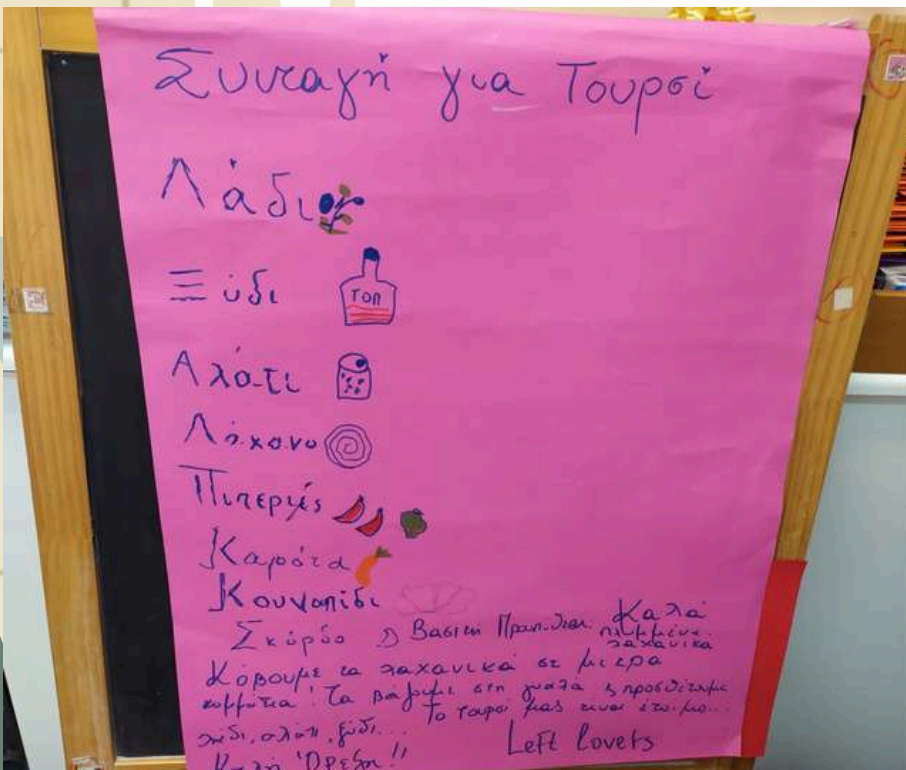 Συνταγή για Τουρσί
Λάδι
Ξύδι
ΤΟΠ
Αλάτι
Λάχανο
Πιπεριές
Καρότα
Κουνοπίδι
Σκόρδο Βασική Καλά
πλυμμένα λαχανικά
Κόβουμε τα λαχανικά σε μικρά
κομμάτια! Τα βάζουμε στη γυάλα & προσθέτουμε
λάδι, αλάτι, ξύδι... Το τουρσί μας είναι έτοιμο...
Καλή Όρεξη!! Left Lovers